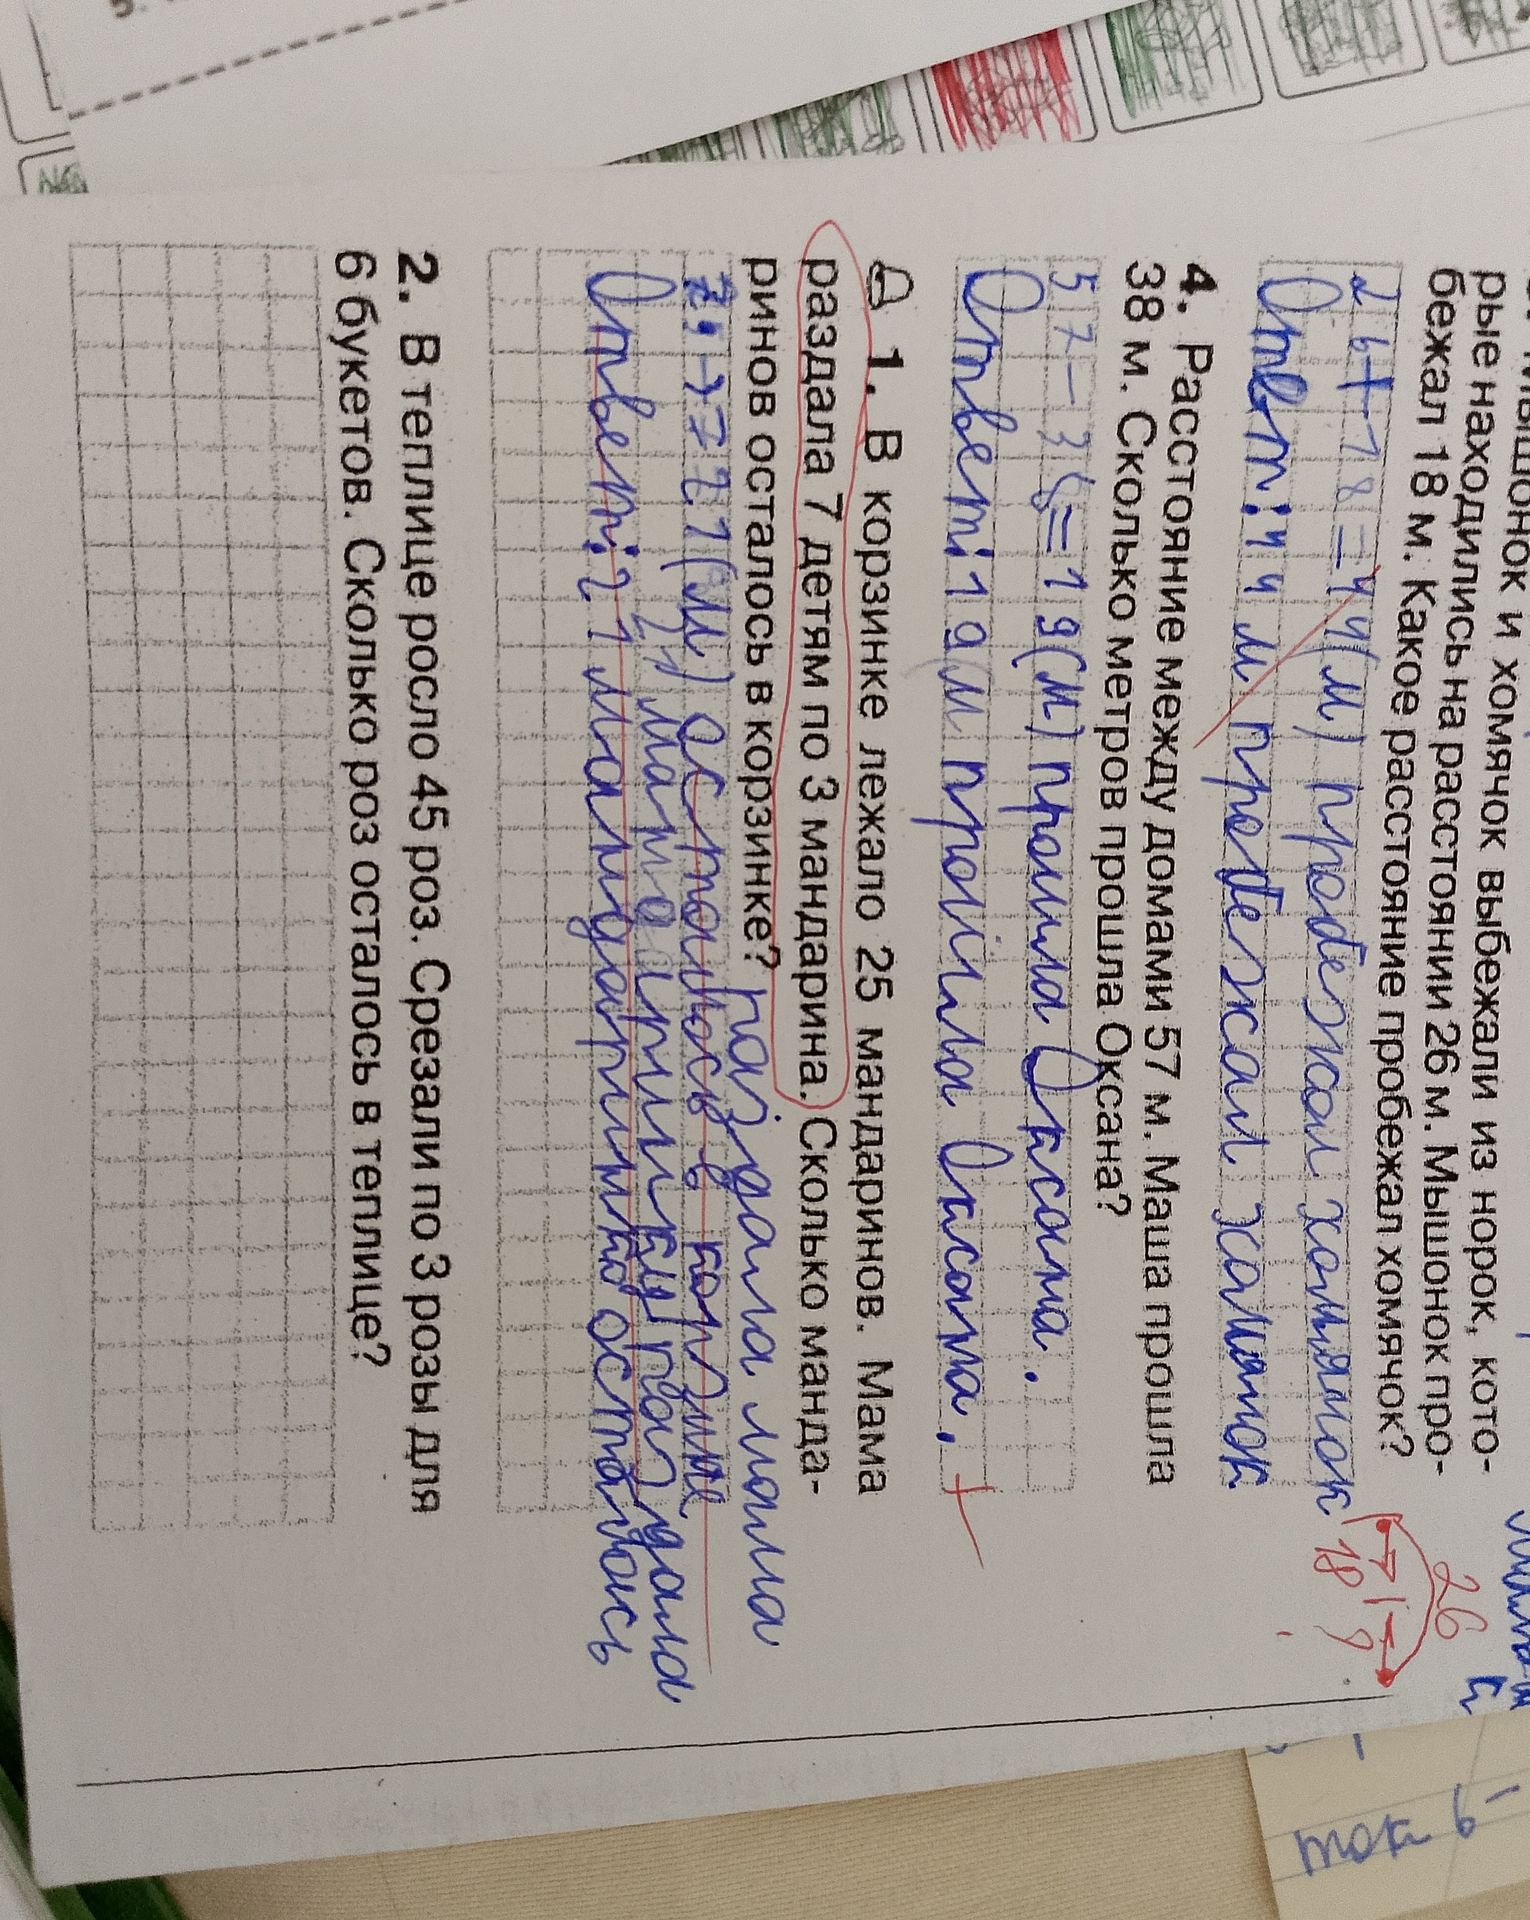 мышонок и хомячок выбежали из норок, кото-
рые находились на расстоянии 26 м. Мышонок про-
бежал 18 м. Какое расстояние пробежал хомячок?
26+18=44(м) пробежал хомячок
Ответ: 44 м пробежал хомячок
26
18 ?
4. Расстояние между домами 57 м. Маша прошла
38 м. Сколько метров прошла Оксана?
57-38=19(м) прошла Оксана.
Ответ: 19м прошла Оксана.
1. В корзинке лежало 25 мандаринов. Мама
раздала 7 детям по 3 мандарина. Сколько манда-
ринов осталось в корзинке?
раздала мама
7·3=21(м) осталось в корзине
раздала
Ответ: 21 мандаринов осталось
2. В теплице росло 45 роз. Срезали по 3 розы для
6 букетов. Сколько роз осталось в теплице?